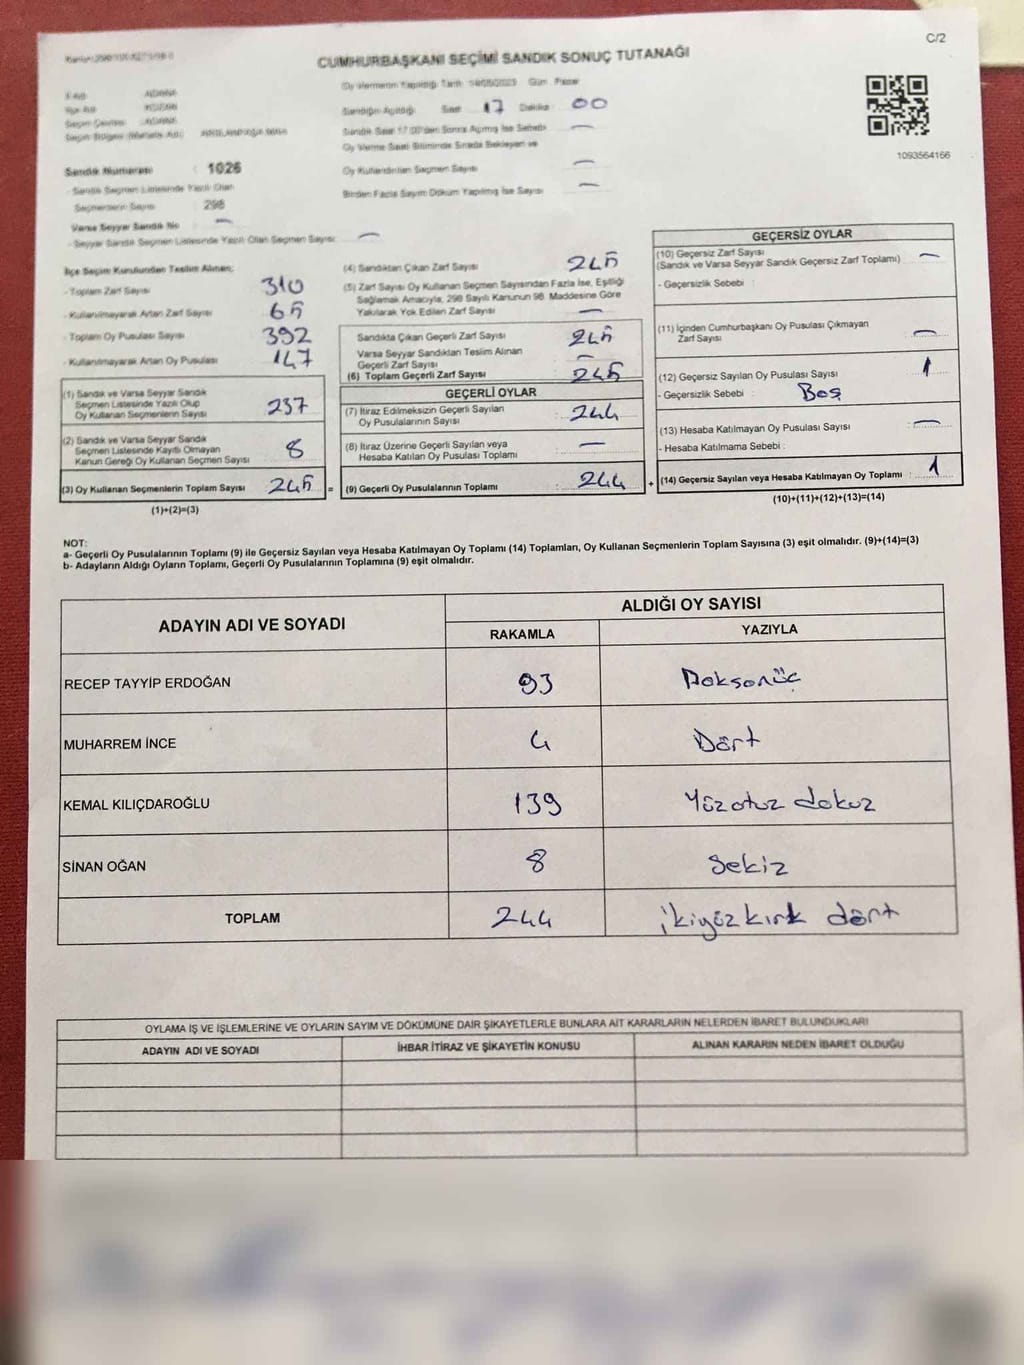 C/2
CUMHURBAŞKANI SEÇİMİ SANDIK SONUÇ TUTANAĞI
Oy Vermenin Yapıldığı Tarih 14/05/2023 Gün Pazar
İl Adı ADANA
İlçe Adı KOZAN
Seçim Çevresi ADANA
Sandığın Açıldığı Saat 17 Dakika 00
Sandık Saat 17:00'den Sonra Açılmış İse Sebebi —
Oy Verme Saati Bitiminde Sırada Bekleyen ve
Oy Kullandırılan Seçmen Sayısı —
Birden Fazla Sayım Döküm Yapılmış İse Sayısı —
1093564166
Sandık Numarası : 1026
- Sandık Seçmen Listesinde Yazılı Olan
Seçmenlerin Sayısı : 298
Varsa Seyyar Sandık No —
- Seyyar Sandık Seçmen Listesinde Yazılı Olan Seçmen Sayısı: —
İlçe Seçim Kurulundan Teslim Alınan;
- Toplam Zarf Sayısı 310
- Kullanılmayarak Artan Zarf Sayısı 65
- Toplam Oy Pusulası Sayısı 392
- Kullanılmayarak Artan Oy Pusulası 147
(1) Sandık ve Varsa Seyyar Sandık
Seçmen Listesinde Yazılı Olup
Oy Kullanan Seçmenlerin Sayısı 237
(2) Sandık ve Varsa Seyyar Sandık
Seçmen Listesinde Kayıtlı Olmayan
Kanun Gereği Oy Kullanan Seçmen Sayısı 8
(3) Oy Kullanan Seçmenlerin Toplam Sayısı 245 =
(1)+(2)=(3)
(4) Sandıktan Çıkan Zarf Sayısı 245
(5) Zarf Sayısı Oy Kullanan Seçmen Sayısından Fazla İse, Eşitliği
Sağlamak Amacıyla, 298 Sayılı Kanunun 98. Maddesine Göre
Yakılarak Yok Edilen Zarf Sayısı —
Sandıkta Çıkan Geçerli Zarf Sayısı 245
Varsa Seyyar Sandıktan Teslim Alınan
Geçerli Zarf Sayısı —
(6) Toplam Geçerli Zarf Sayısı 245
GEÇERLİ OYLAR
(7) İtiraz Edilmeksizin Geçerli Sayılan
Oy Pusulalarının Sayısı : 244
(8) İtiraz Üzerine Geçerli Sayılan veya
Hesaba Katılan Oy Pusulası Toplamı —
(9) Geçerli Oy Pusulalarının Toplamı : 244 +
GEÇERSİZ OYLAR
(10) Geçersiz Zarf Sayısı
(Sandık ve Varsa Seyyar Sandık Geçersiz Zarf Toplamı) : —
- Geçersizlik Sebebi :
(11) İçinden Cumhurbaşkanı Oy Pusulası Çıkmayan
Zarf Sayısı : —
(12) Geçersiz Sayılan Oy Pusulası Sayısı : 1
- Geçersizlik Sebebi : Boş
(13) Hesaba Katılmayan Oy Pusulası Sayısı : —
- Hesaba Katılmama Sebebi :
(14) Geçersiz Sayılan veya Hesaba Katılmayan Oy Toplamı : 1
(10)+(11)+(12)+(13)=(14)
NOT:
a- Geçerli Oy Pusulalarının Toplamı (9) ile Geçersiz Sayılan veya Hesaba Katılmayan Oy Toplamı (14) Toplamları, Oy Kullanan Seçmenlerin Toplam Sayısına (3) eşit olmalıdır. (9)+(14)=(3)
b- Adayların Aldığı Oyların Toplamı, Geçerli Oy Pusulalarının Toplamına (9) eşit olmalıdır.
ADAYIN ADI VE SOYADI
ALDIĞI OY SAYISI
RAKAMLA YAZIYLA
RECEP TAYYİP ERDOĞAN 93 Doksanüç
MUHARREM İNCE 4 Dört
KEMAL KILIÇDAROĞLU 139 Yüzotuz dokuz
SİNAN OĞAN 8 Sekiz
TOPLAM 244 ikiyüz kırk dört
OYLAMA İŞ VE İŞLEMLERİNE VE OYLARIN SAYIM VE DÖKÜMÜNE DAİR ŞİKAYETLERLE BUNLARA AİT KARARLARIN NELERDEN İBARET BULUNDUKLARI
ADAYIN ADI VE SOYADI İHBAR İTİRAZ VE ŞİKAYETİN KONUSU ALINAN KARARIN NEDEN İBARET OLDUĞU